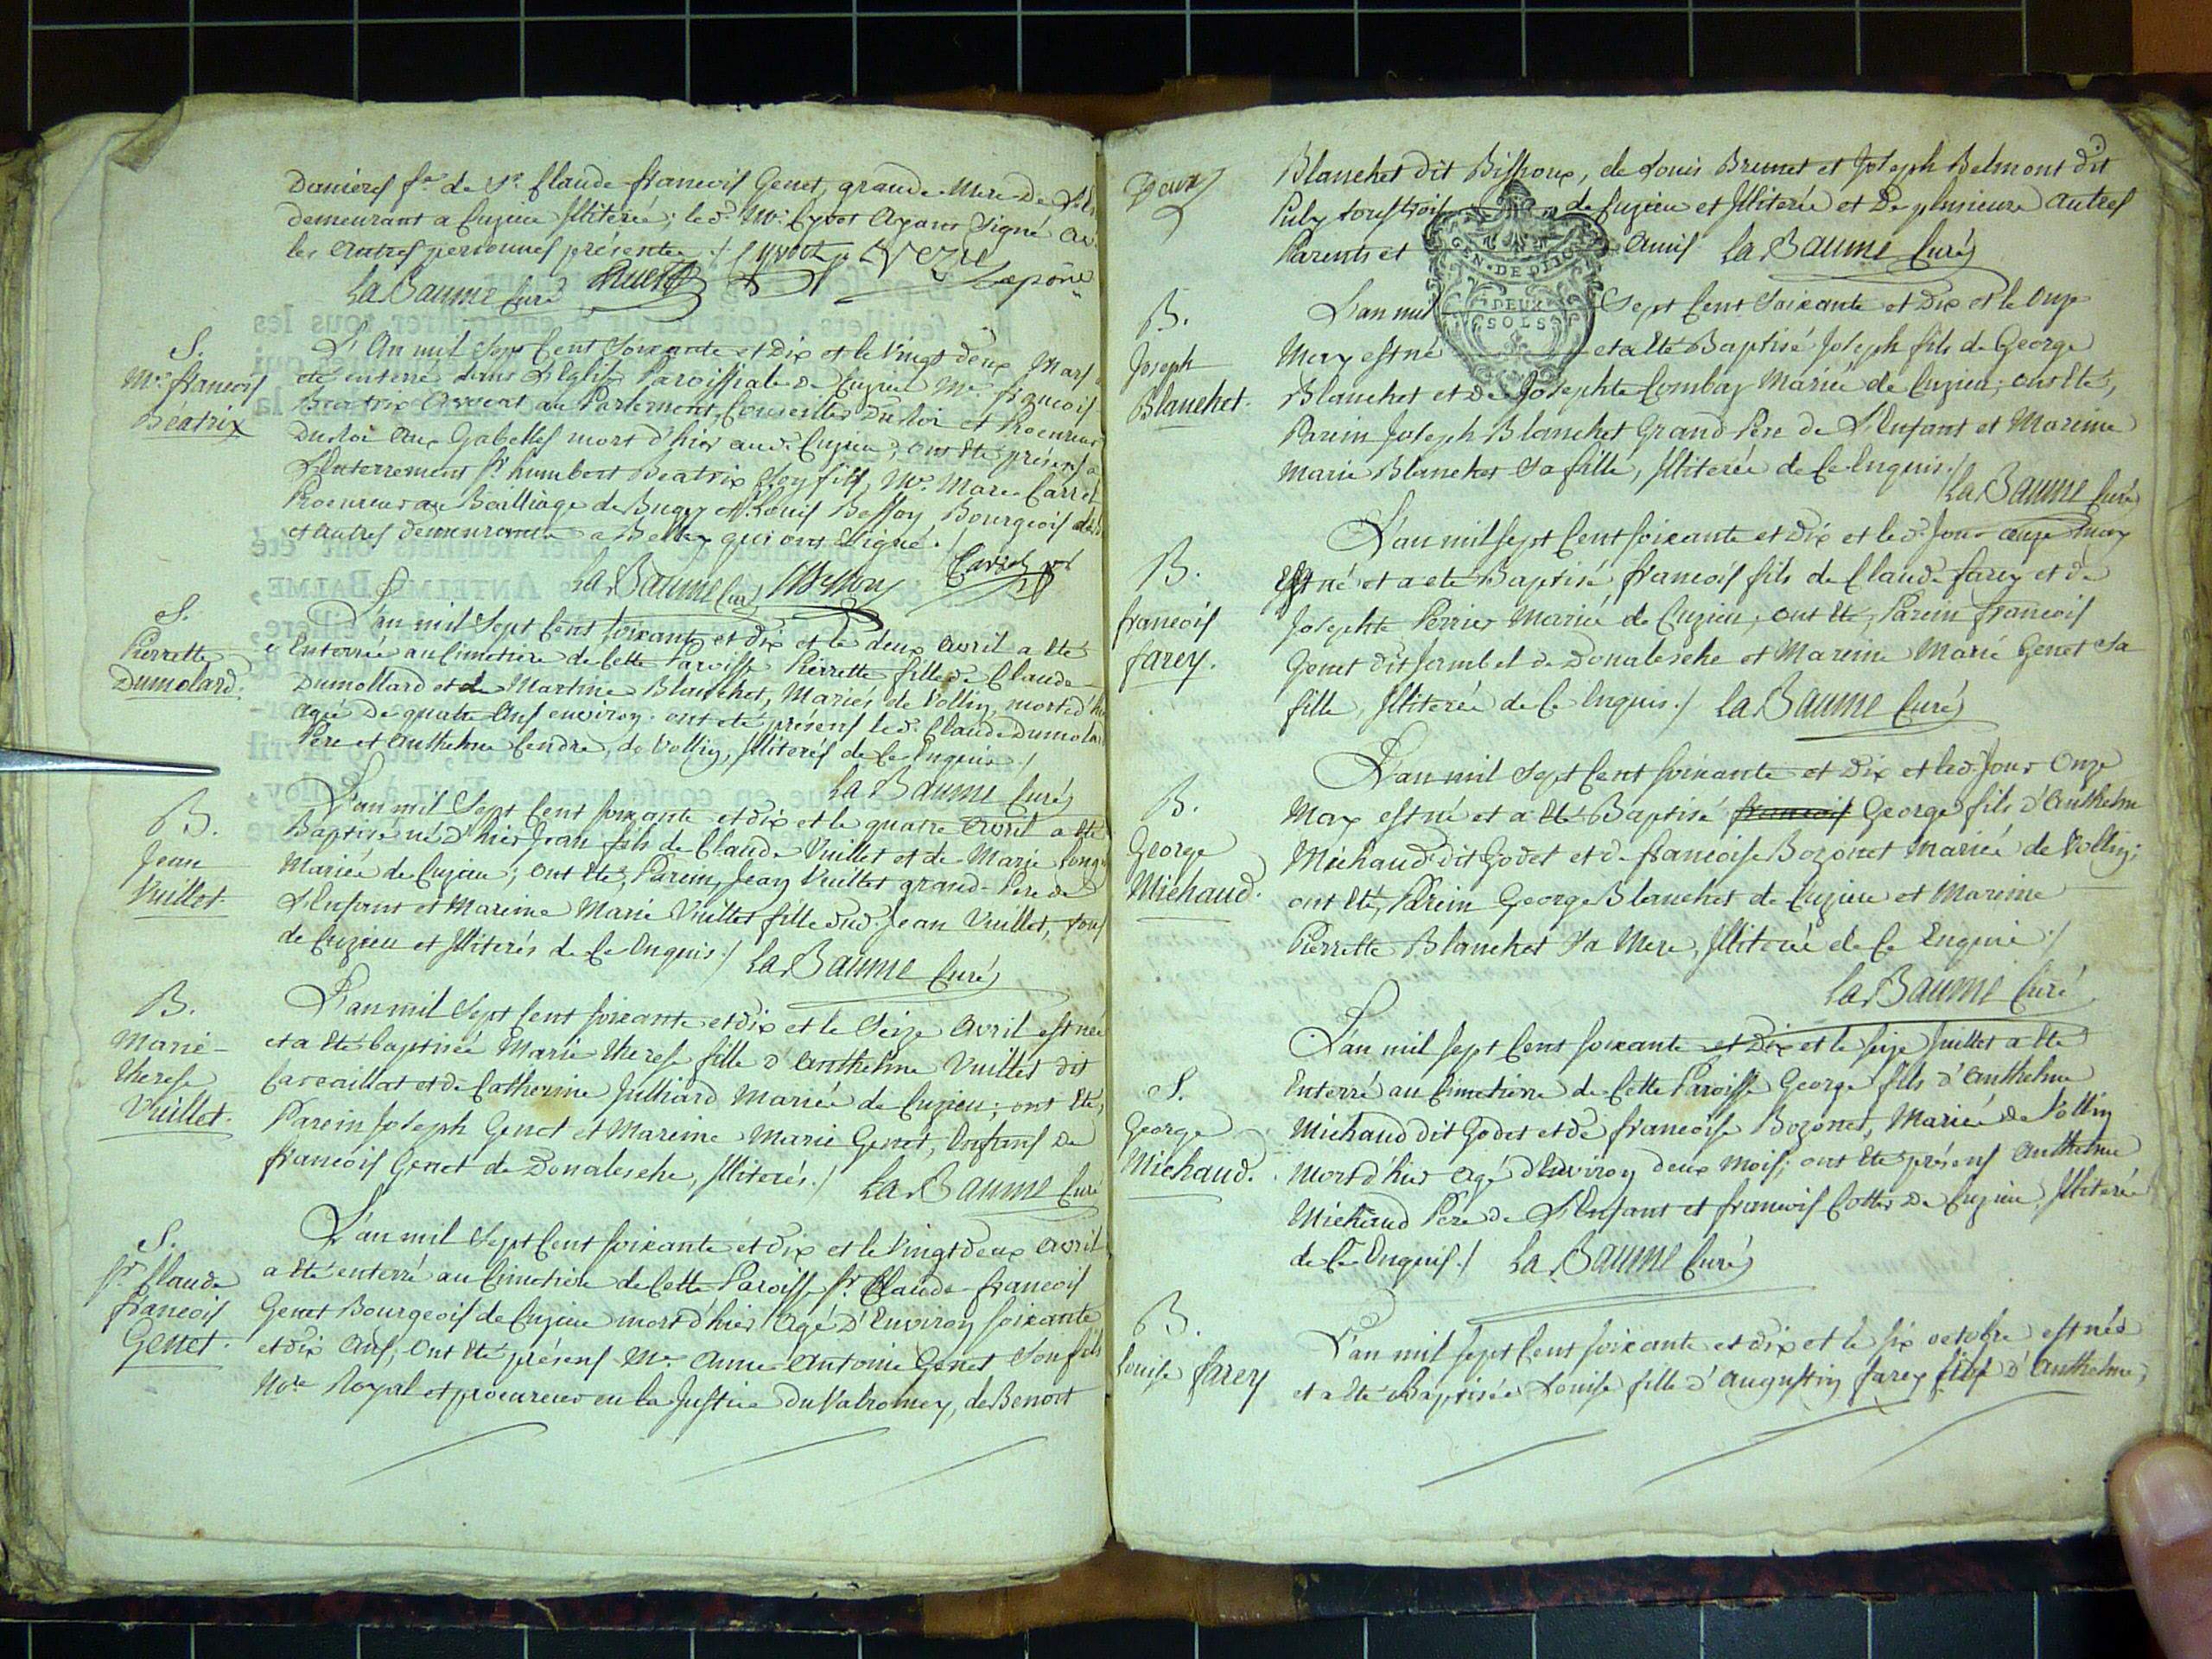 Danieres fe. de Sr. Claude francois Genet, grande Mere de
demeurant a Cuzieu Illiterée; led. Me. Cyvot Ayant Signé
les autres personnes présentes ./.
La Baume Curé
S.
Me. francois
Beatrix
L'An mil Sept Cent Soixante et Dix et le Vingt deux Mars
été enterré dans L'Eglise Paroissiale de Cuzieu Me. francois
Beatrix Avocat au Parlement, Conseiller du Roi et Procureur
du Roi aux Gabelles mort d'hier aud. Cuzieu; ont été présens a
L'Enterrement Sr. humbert Beatrix Son fils, Me. Marc Carrel
Procureur au Bailliage de Bugey et Sr. Louis Bessoy, Bourgeois
et autres demeurants a Belley qui ont Signé.
La Baume Curé
S.
Pierrette
Dumolard.
L'an mil Sept Cent soixante et dix et le deux avril a été
Enterrée au Cimetiere de Cette Paroisse Pierrette fille de Claude
Dumollard et de Martine Blanchet, Mariés de Vollin, morte d'hier
agée de quatre ans environ. ont été présens led. Claude Dumolard
Pere et Anthelme Cendre, de Vollin, Illiterés de Ce Enquis ./
La Baume Curé
B.
Jean
Vuillet.
L'an mil Sept Cent soixante et dix et le quatre avril a été
Baptisé né d'hier Jean fils de Claude Vuillet et de Marie
Mariée de Cuzieu; ont été, Parein Jean Vuillet grand-Pere de
L'Enfant et Mareine Marie Vuillet fille dud. Jean Vuillet, tous
de Cuzieu et Illiterés de Ce Enquis ./ La Baume Curé
B.
Marie-
Therese
Vuillet.
L'an mil Sept Cent soixante et dix et le Seize avril est née
et a été baptisée Marie therese fille d'Anthelme Vuillet dit
Cavaillat et de Catherine Julliard Mariée de Cuzieu; ont été,
Parein Joseph Genet et Mareine Marie Genet, Enfans de
francois Genet de Donalesche, Illiterés ./ La Baume Curé
S.
Sr. Claude
francois
Genet.
L'an mil Sept Cent soixante et dix et le Vingt deux avril
a été enterré au Cimetiere de Cette Paroisse Sr. Claude francois
Genet Bourgeois de Cuzieu mort d'hier Agé d'Environ soixante
et dix ans, Ont été présens Me. Anne-Antoine Genet Son fils
Nore. Royal et procureur en la Justice du Valromey, de Benoit
Blanchet dit Bissoux, de Louis Brunet et Joseph Belmont dit
Puly tous trois de Cuzieu et Illiterés et De plusieurs autres
Parents et Amis La Baume Curé
GEN. DE DIJON
DEUX
SOLS
B.
Joseph
Blanchet.
L'an mil Sept Cent Soixante et Dix et le Onze
May est né et a été Baptisé Joseph fils de George
Blanchet et de Josephte Combaz Mariée de Cuzieu; ont été,
Parein Joseph Blanchet Grand Pere de L'Enfant et Mareine
Marie Blanchet Sa fille, Illiterée de Ce Enquis ./
La Baume Curé
B.
francois
farey.
L'an mil sept Cent soixante et Dix et led. Jour onze may
Est né et a été Baptisé francois fils de Claude farey et de
Josephte Perrier Mariée de Cuzieu; ont été, Parein francois
Genet dit Jambel de Donalesche et Mareine Marie Genet Sa
fille, Illiterée de Ce Enquis ./ La Baume Curé
B.
George
Michaud.
L'an mil Sept Cent soixante et Dix et led. Jour Onze
May est né et a été Baptisé francois George fils d'Anthelme
Michaud dit Godet et de francoise Bozonet Mariée de Vollin;
ont été, Parein George Blanchet de Cuzieu et Mareine
Pierrette Blanchet Sa Mere, Illiterée de Ce Enquis ./
La Baume Curé
S.
George
Michaud.
L'an mil sept Cent soixante et Dix et le seize Juillet a été
Enterré au Cimetiere de Cette Paroisse George fils d'Anthelme
Michaud dit Godet et de francoise Bozonet, Mariée de Vollin
Mort d'hier Agé d'Environ deux Mois; ont été présens Anthelme
Michaud Pere de L'Enfant et francois Cottier de Cuzieu, Illiterée
de Ce Enquis ./ La Baume Curé
B.
Louise farey
L'an mil sept Cent soixante et dix et le six octobre est née
et a été Baptisée Louise fille d'Augustin farey fils d'Anthelme,